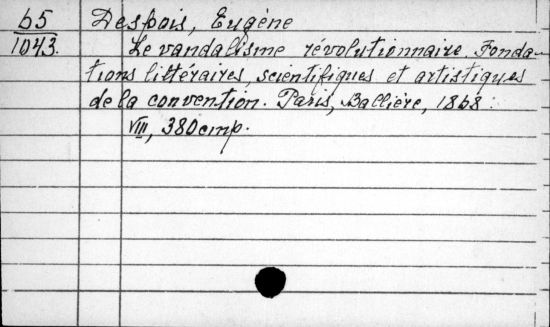 b5 Despois, Eugène
1043. Le vandalisme révolutionnaire. Fonda-
tions littéraires, scientifiques et artistiques
de la convention. Paris, Ballière, 1868.
VIII, 380 стр.